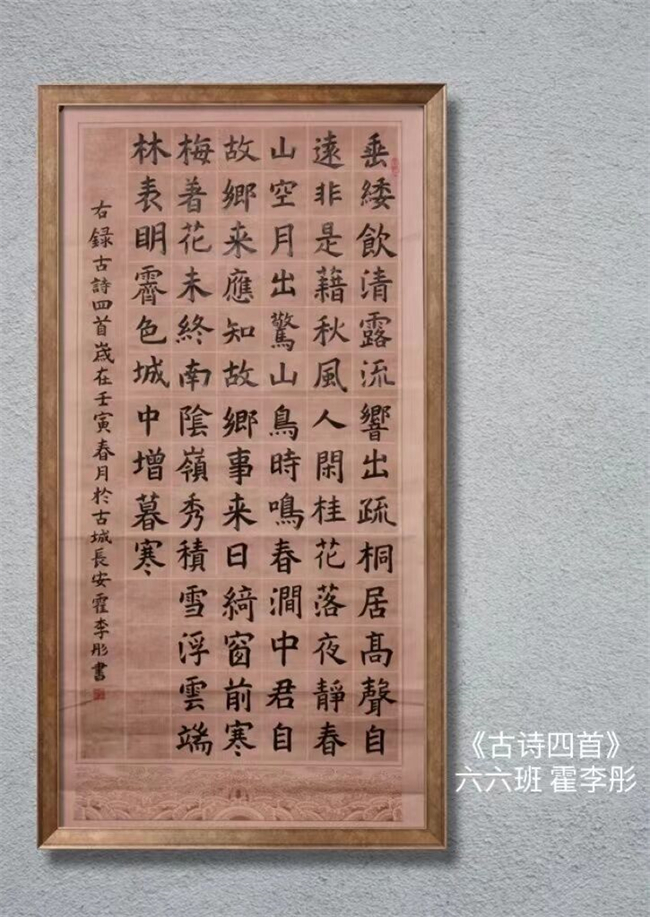 垂緌飲清露流響出疏桐居高聲自
遠非是藉秋風人閑桂花落夜靜春
山空月出驚山鳥時鳴春澗中君自
故鄉来應知故鄉事来日綺窗前寒
梅著花未終南陰嶺秀積雪浮雲端
林表明霽色城中增暮寒
右錄古詩四首歲在壬寅春月於古城長安霍李彤書
《古诗四首》
六六班 霍李彤